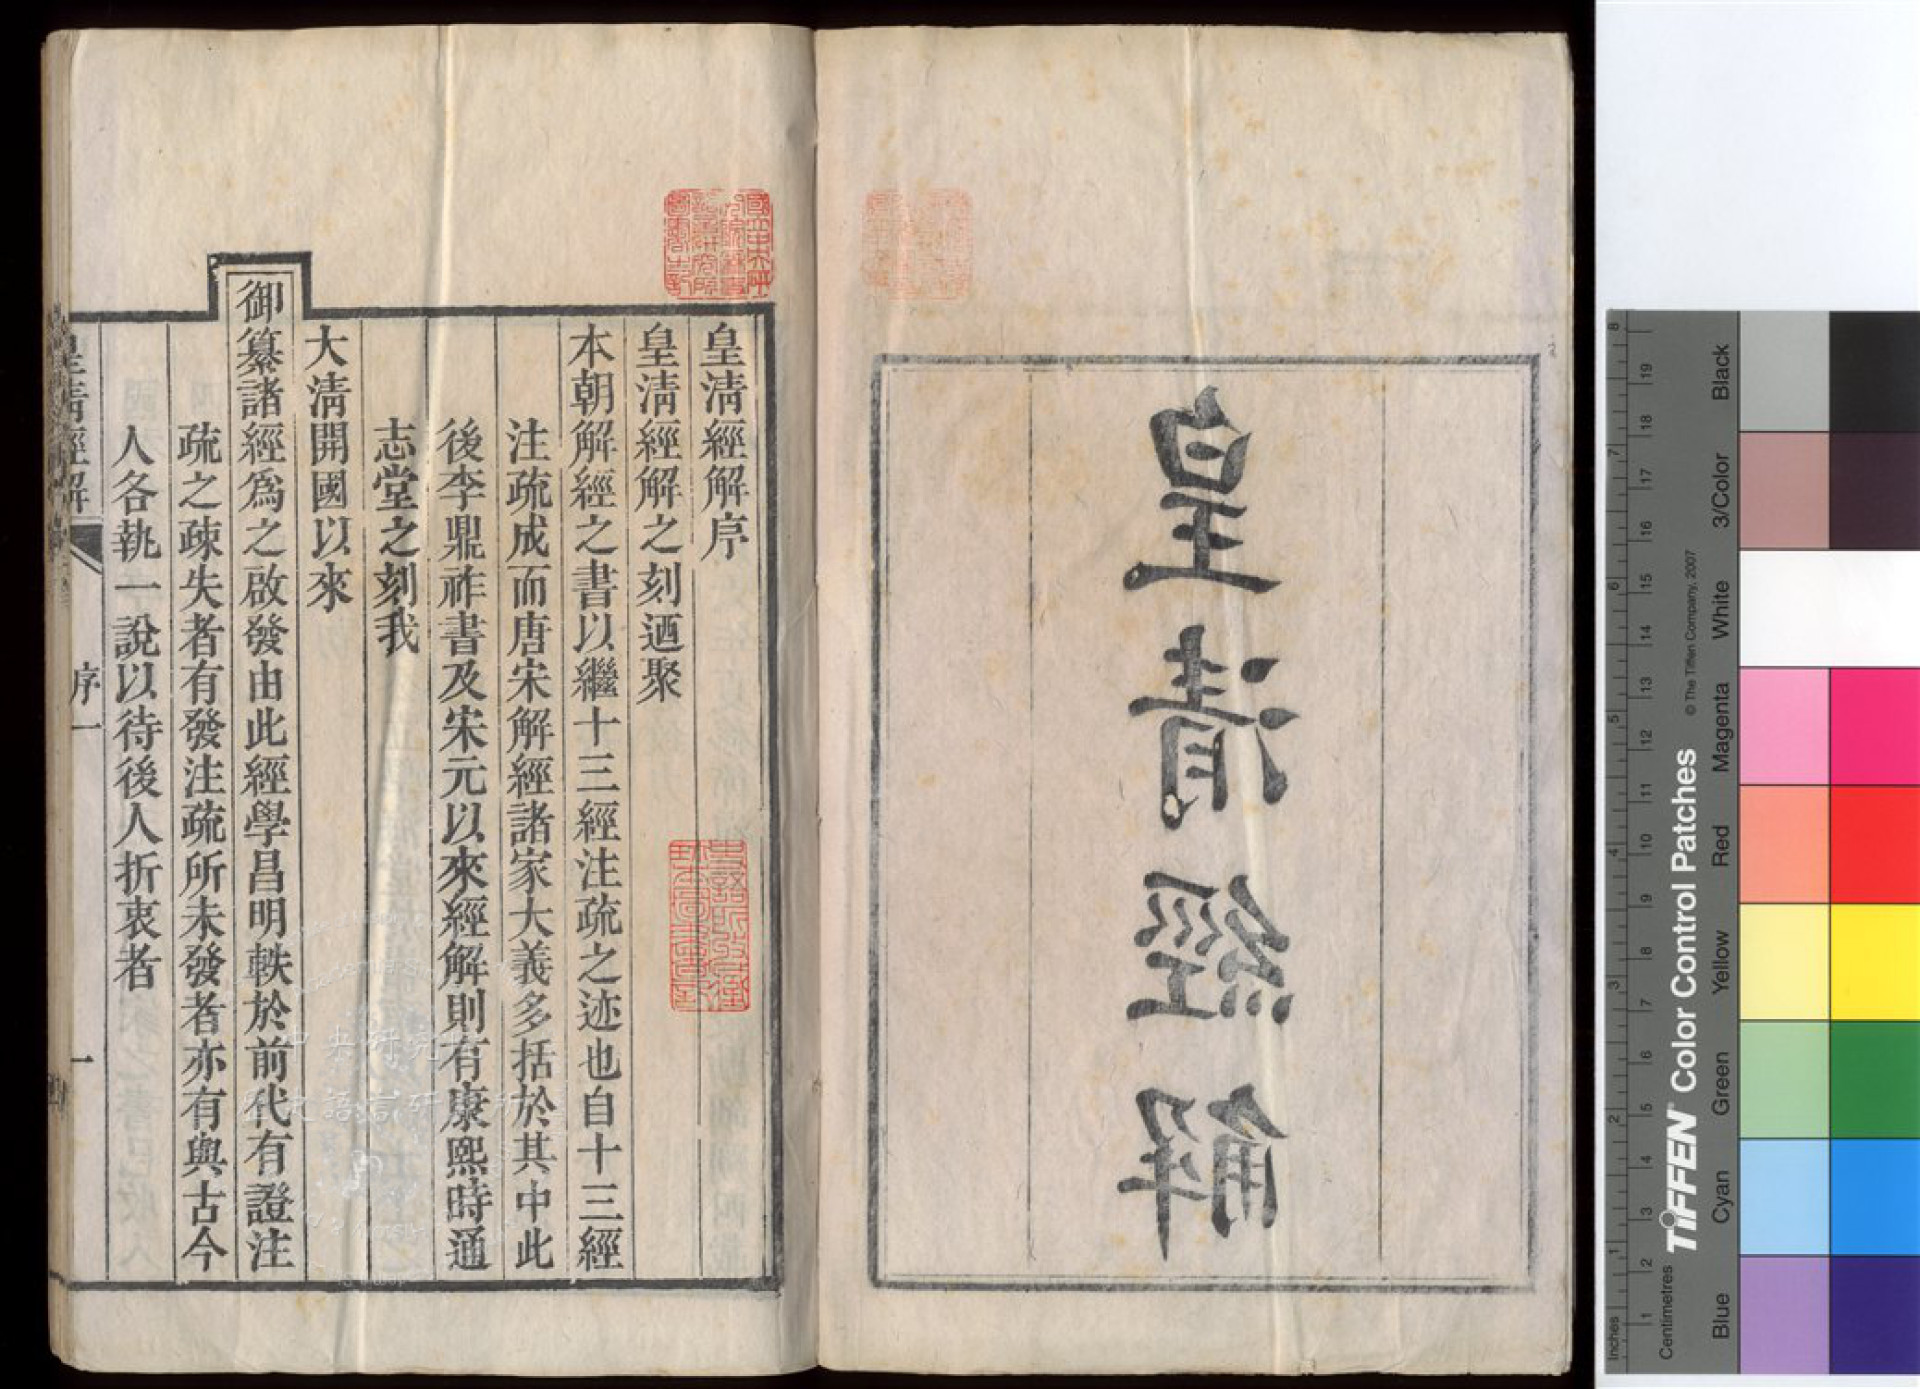 皇清經解
皇清經解序
皇清經解之刻迺聚
本朝解經之書以繼十三經注疏之迹也自十三經
注疏成而唐宋解經諸家大義多括於其中此
後李鼎祚書及宋元以來經解則有康熙時通
志堂之刻我
大清開國以來
御纂諸經爲之啟發由此經學昌明軼於前代有證注
疏之疎失者有發注疏所未發者亦有與古今
人各執一說以待後人折衷者
皇清經解
序一
一
Inches
Centimetres
1 2 3 4 5 6 7 8
1 2 3 4 5 6 7 8 9 10 11 12 13 14 15 16 17 18 19
TIFFEN Color Control Patches
© The Tiffen Company, 2007
Blue Cyan Green Yellow Red Magenta White 3/Color Black